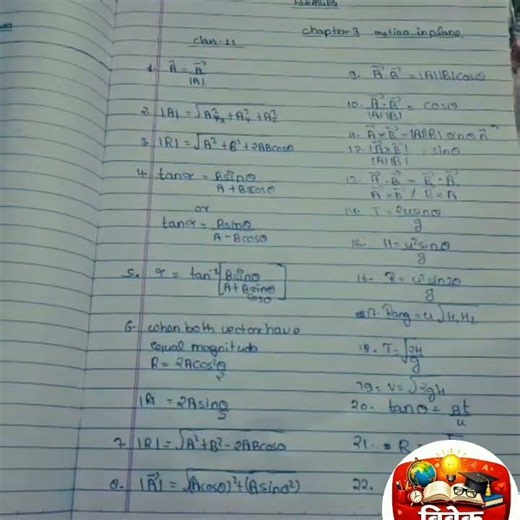 Formula
chapter 3 motion in plane
class-11
1. Â = A⃗
|A|
2. |A| = √A²x + A²y + A²z
3. |R| = √A² + B² + 2ABcosθ
4. tanα = Bsinθ
A + Bcosθ
or
tanα = Bsinθ
A - Bcosθ
5. α = tan⁻¹[Bsinθ
A + Bsinθ]
cosθ
6. when both vector have
equal magnitude
R = 2Acos²θ
2
|R| = 2Asinθ
2
7. |R| = √A² + B² - 2ABcosθ
8. |A⃗| = √(Acosθ)² + (Asinθ²)
9. A⃗. B⃗ = |A||B|cosθ
10. A⃗. B⃗ = cosθ
|A||B|
11. A⃗ x B⃗ = |A||B| sinθ n̂
12. |A⃗ x B⃗| = sinθ
|A||B|
13. A⃗. B⃗ = B⃗. A⃗,
A⃗ x B⃗ / B x A
14. T = 2usinθ
g
15. H = u²sinθ
g
16. R = u²sin2θ
g
17. Rang = u√H, H₂
18. T = √2H
g
19 = V = √2gH
20. tanθ = gt
u
21. R =
22.
विवेक